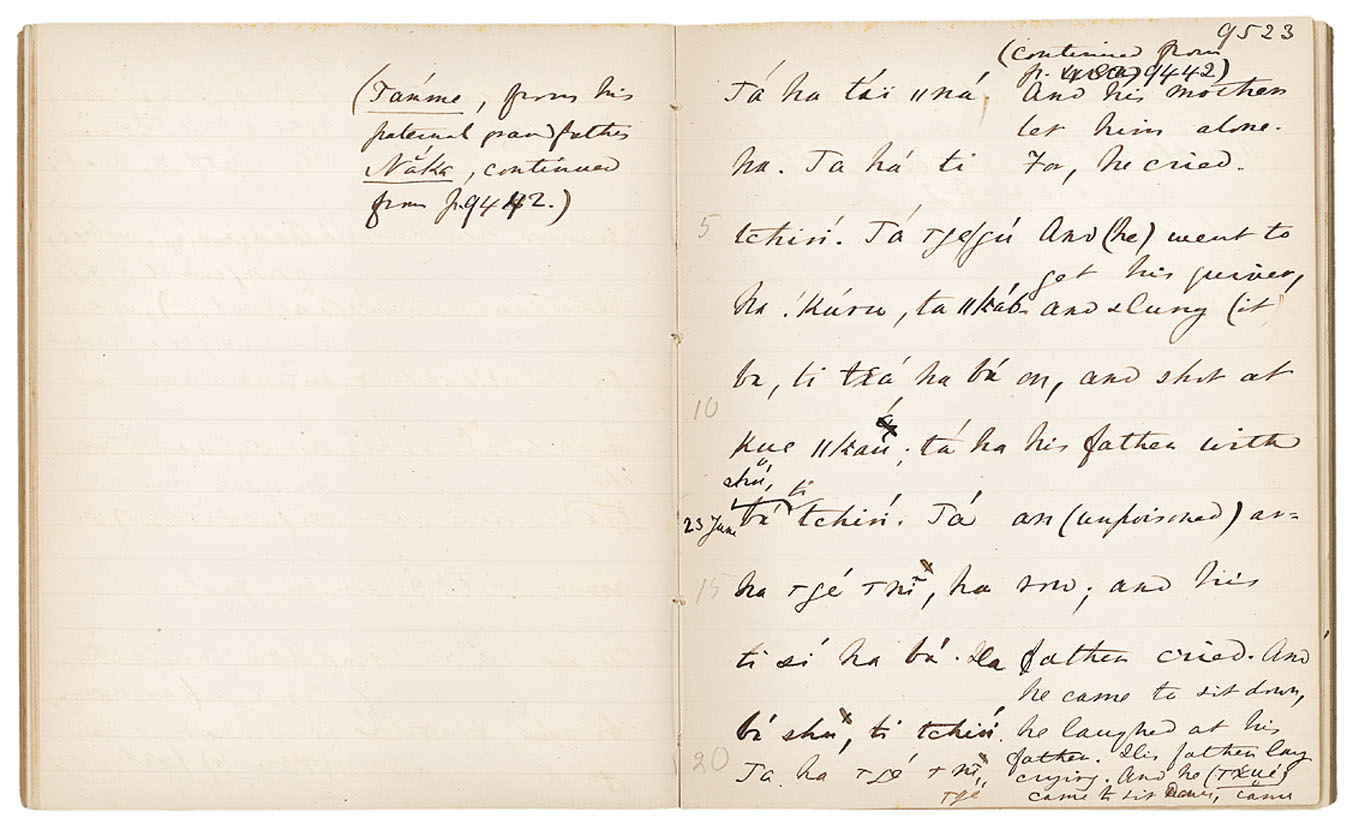 (Támme, from his
paternal grandfather
Năka, continued
from p. 9442.)
9523
(continued from
p. 9442)
Tá ha táï ǁná And his mother
let him alone.
ha. Ta há ti For, he cried.
5
tchin̄́. Tá And (he) went to
get his quiver,
ha ǃkúru, ta ǁkáb- and slung (it
ba, ti txá ha bá on, and shot at
10
kue ǁkaú; tá ha his father with
shú, ti
23 June bá tchin̄́. Tá an (unpoisoned) ar=
15 ha ꞇgé ꞇnĭ, ha row; and his
ti sí ha bá. Ha father cried. And
he came to sit down,
bá shú, ti tchin̄́. he laughed at his
father. His father lay
20 Ta ha ꞇgé ꞇnĭ, crying. And he (ꞇxué)
ꞇgé came to sit down, came